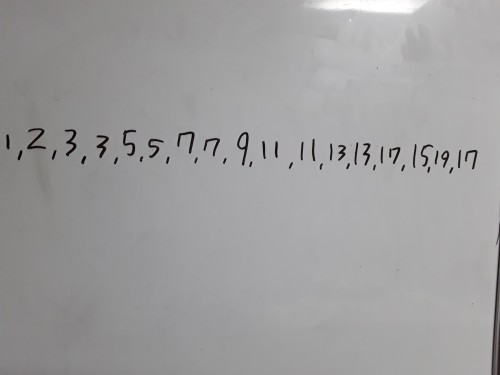 1, 2, 3, 3, 5, 5, 7, 7, 9, 11, 11, 13, 13, 17, 15, 19, 17